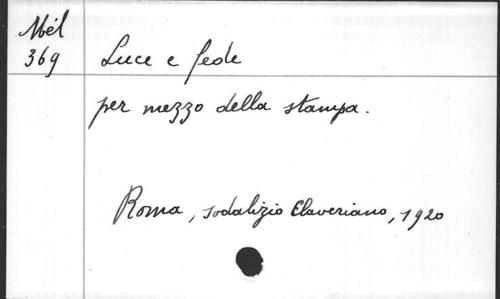 Mél
369
Luce e fede
per mezzo della stampa.
Roma, sodalizio Claveriano, 1920